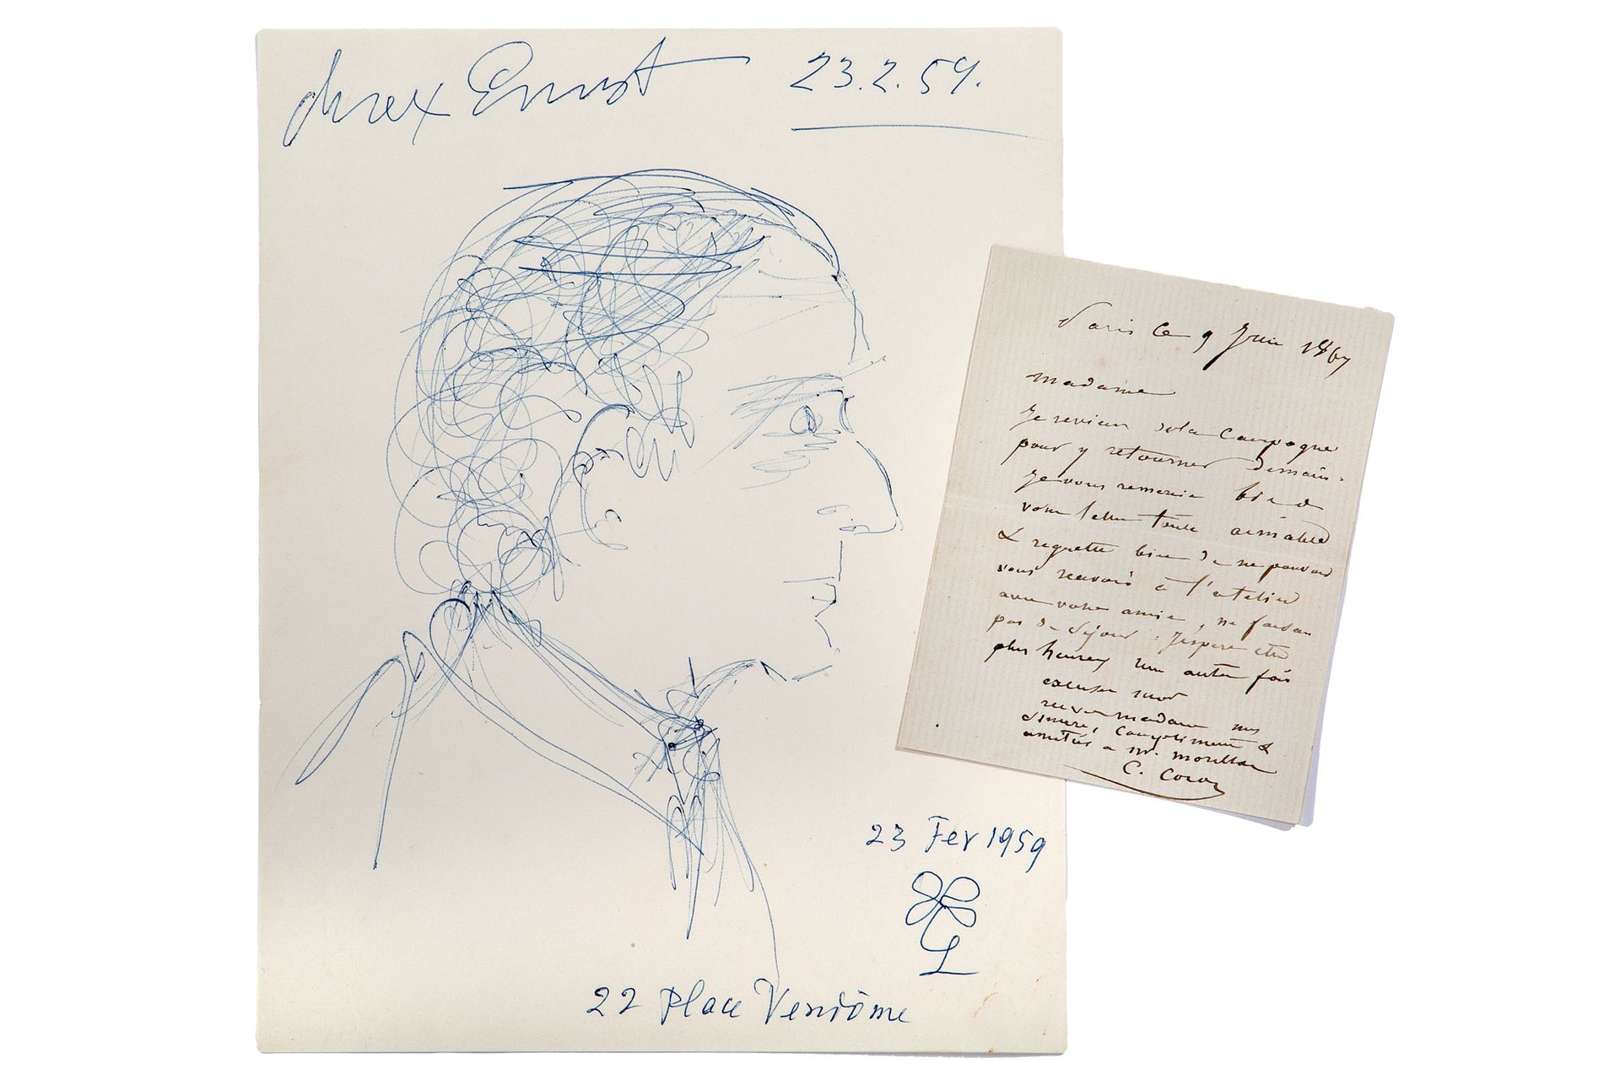 Max Ernst 23.2.59.
23 Fev 1959
L
22 Place Vendôme
Paris le 9 Juin 1867
Madame
Je reviens de la Campagne
pour y retourner demain.
Je vous remercie bien de
votre lettre toute aimable
& regrette bien de ne pouvoir
vous recevoir à l'atelier
avec votre amie, ne faisan
pas de séjour. J'espère être
plus heureux une autre fois
excusez moi
recevez madame mes
sincères Compliments &
amitiés a Mr.
C. Corot